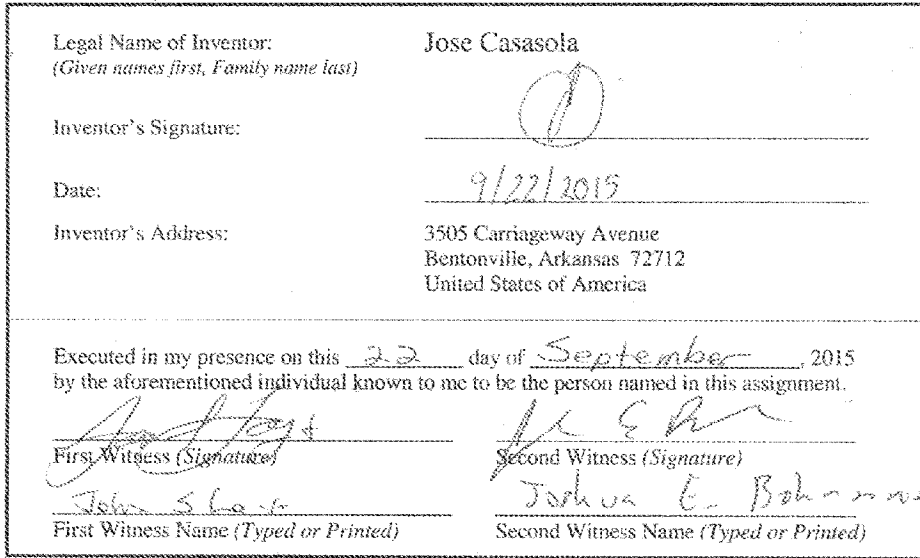 Legal Name of Inventor: Jose Casasola
(Given names first, Family name last)
Inventor's Signature:
Date: 9/22/2015
Inventor's Address: 3505 Carriageway Avenue
Bentonville, Arkansas 72712
United States of America
Executed in my presence on this 22 day of September, 2015
by the aforementioned individual known to me to be the person named in this assignment.
First Witness (Signature) Second Witness (Signature)
John Joshua E.
First Witness Name (Typed or Printed) Second Witness Name (Typed or Printed)